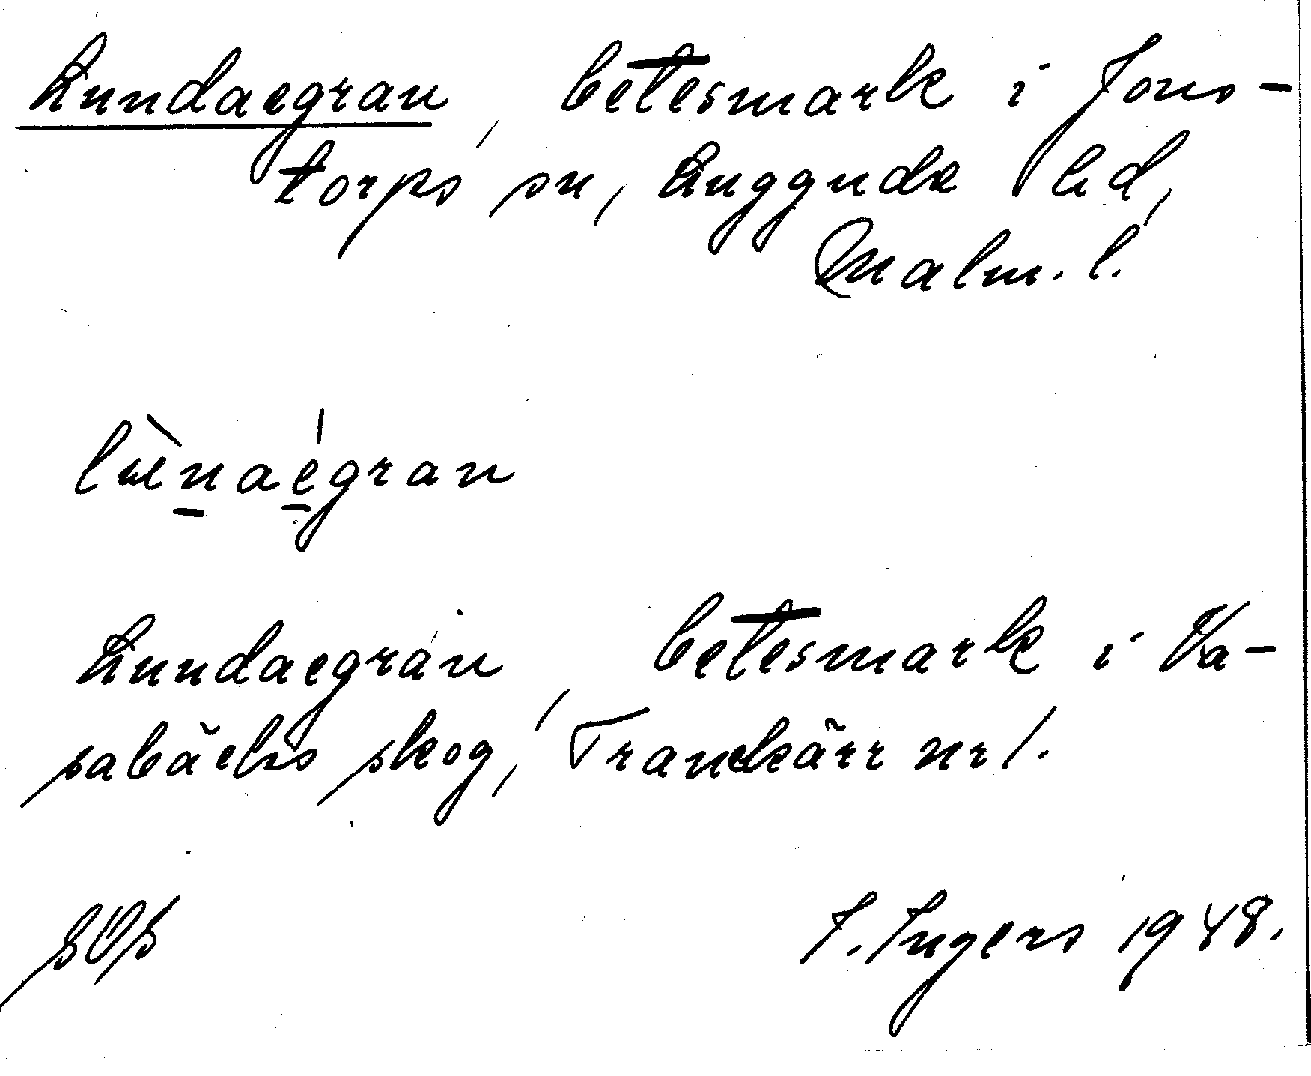 Lundaegran, betesmark i Jons-
torps sn, Luggude hd,
Malm. l.
lwnaegran
Lundaegran, betesmark i Va-
sabäcks skog, Tranekärr nr 1.
I. Ingers 1948.